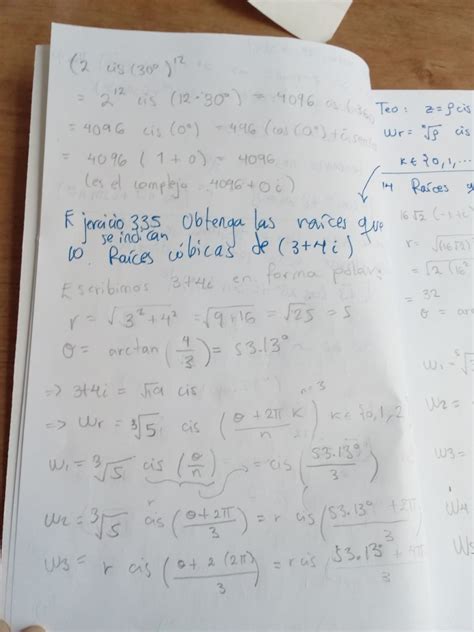 (2 cis(30°))¹²
= 2¹² cis (12·30°) = 4096 cis (360)
= 4096 cis (0°) = 496 (cos(0°)+i sen(0
= 4096 (1+0) = 4096
(es el complejo 4096+0i)
Ejercicio 335 Obtenga las raíces que
se indican
10. Raíces cúbicas de (3+4i)
Escribimos 3+4i en forma polar
r = √3²+4² = √9+16 = √25 = 5
θ = arctan (4/3) = 53.13°
=> 3+4i = cis
n=3
=> Wr = ³√5 cis (θ+2π k / n) k∈{0,1,2
W₁ = ³√5 cis (θ/n) = cis (53.13°/3)
W₂ = ³√5 cis (θ+2π / 3) = r cis (53.13°+2π / 3)
r
W₃ = r cis (θ+2(2π) / 3) = r cis (53.13°+ / 3
Teo: z=ρcis
Wr = ⁿ√ρ cis
k∈{0,1,...
14 Raíces
16√2 (-1+i
r = √(16√2)
= √2(16²
= 32
θ = arc
W₁ =
W₂ =
W₃ =
W₄
W₅